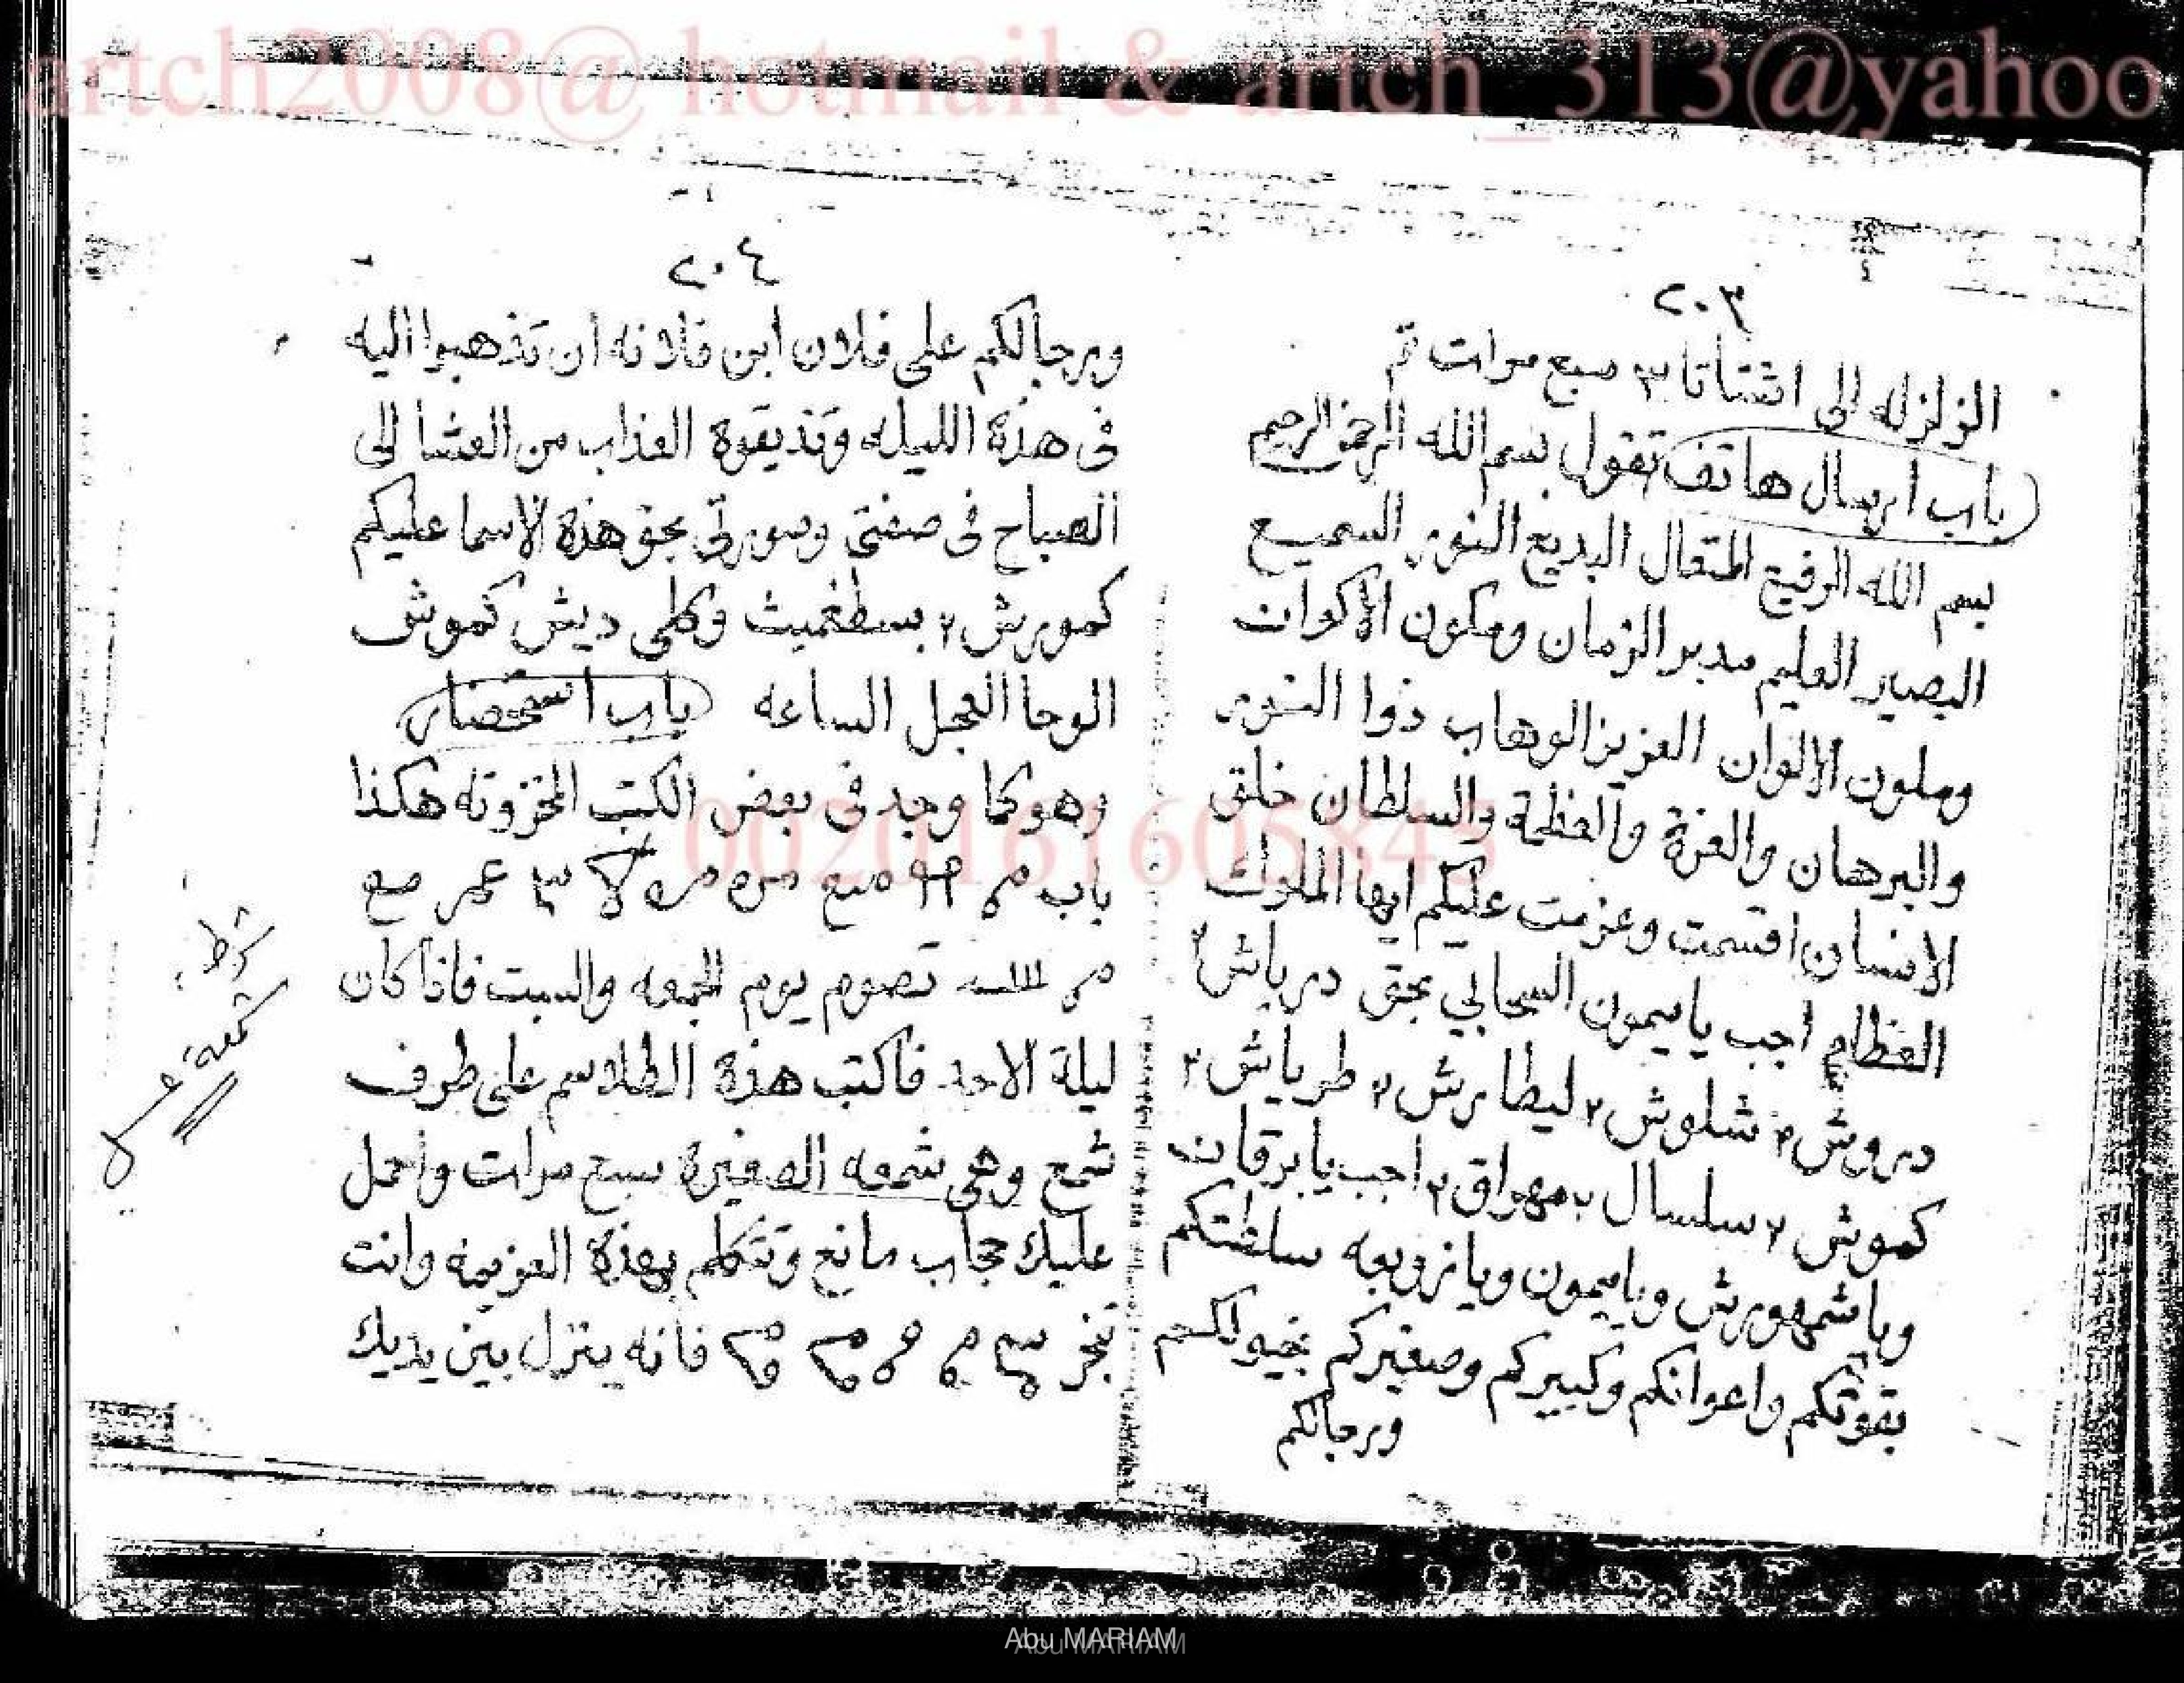 artch2008@ hotmail & artch_313@yahoo
٢٠٣
الزلزله الى اشتاتا ٣ سبع مرات تم
باب ارسال هاتف تقول بسم الله الرحمن الرحيم
بسم الله الرفيع المتعال البديع النور السميع
البصير العليم مدبر الزمان ومكون الاكوان
وملون الالوان العزيز الوهاب ذوا النور
والبرهان والعزة والعظمة والسلطان خلق
الانسان اقسمت وعزمت عليكم ايها الملوك
العظام اجب يا ميمون السحابي بحق درياش ٢
دروش ٢ شلوش ٢ ليطارش ٢ طرياش ٢
كموش ٢ سلسال ٢ مهراق ٢ اجب يا برقان
ويا شمهورش ويا ميمون ويا زوبعه سلطتكم
بقوتكم واعوانكم وكبيركم وصغيركم بخيولكم
ورجالكم
٢٠٤
ورجالكم على فلان ابن فلانه ان تذهبوا اليه
فى هذة الليله وتذيقوة العذاب من العشا الى
الصباح فى صفتى وصورتى بحق هذة الاسما عليكم
كمورش ٢ بسطغميث وكلمى ديش كموش
الوحا العجل الساعه باب استحضار
وهو كما وجد فى بعض الكتب المخزونه هكذا
باب
تصوم يوم الجمعه والسبت فاذا كان
ليلة الاحد فاكتب هذة الطلاسم على طرف
شمع وهى شمعه الصغيرة سبع مرات واحمل
عليك حجاب مانع وتتكلم بهذة العزيمه وانت
تبخر فانه ينزل بين يديك
0020161605843
Abu MARIAM